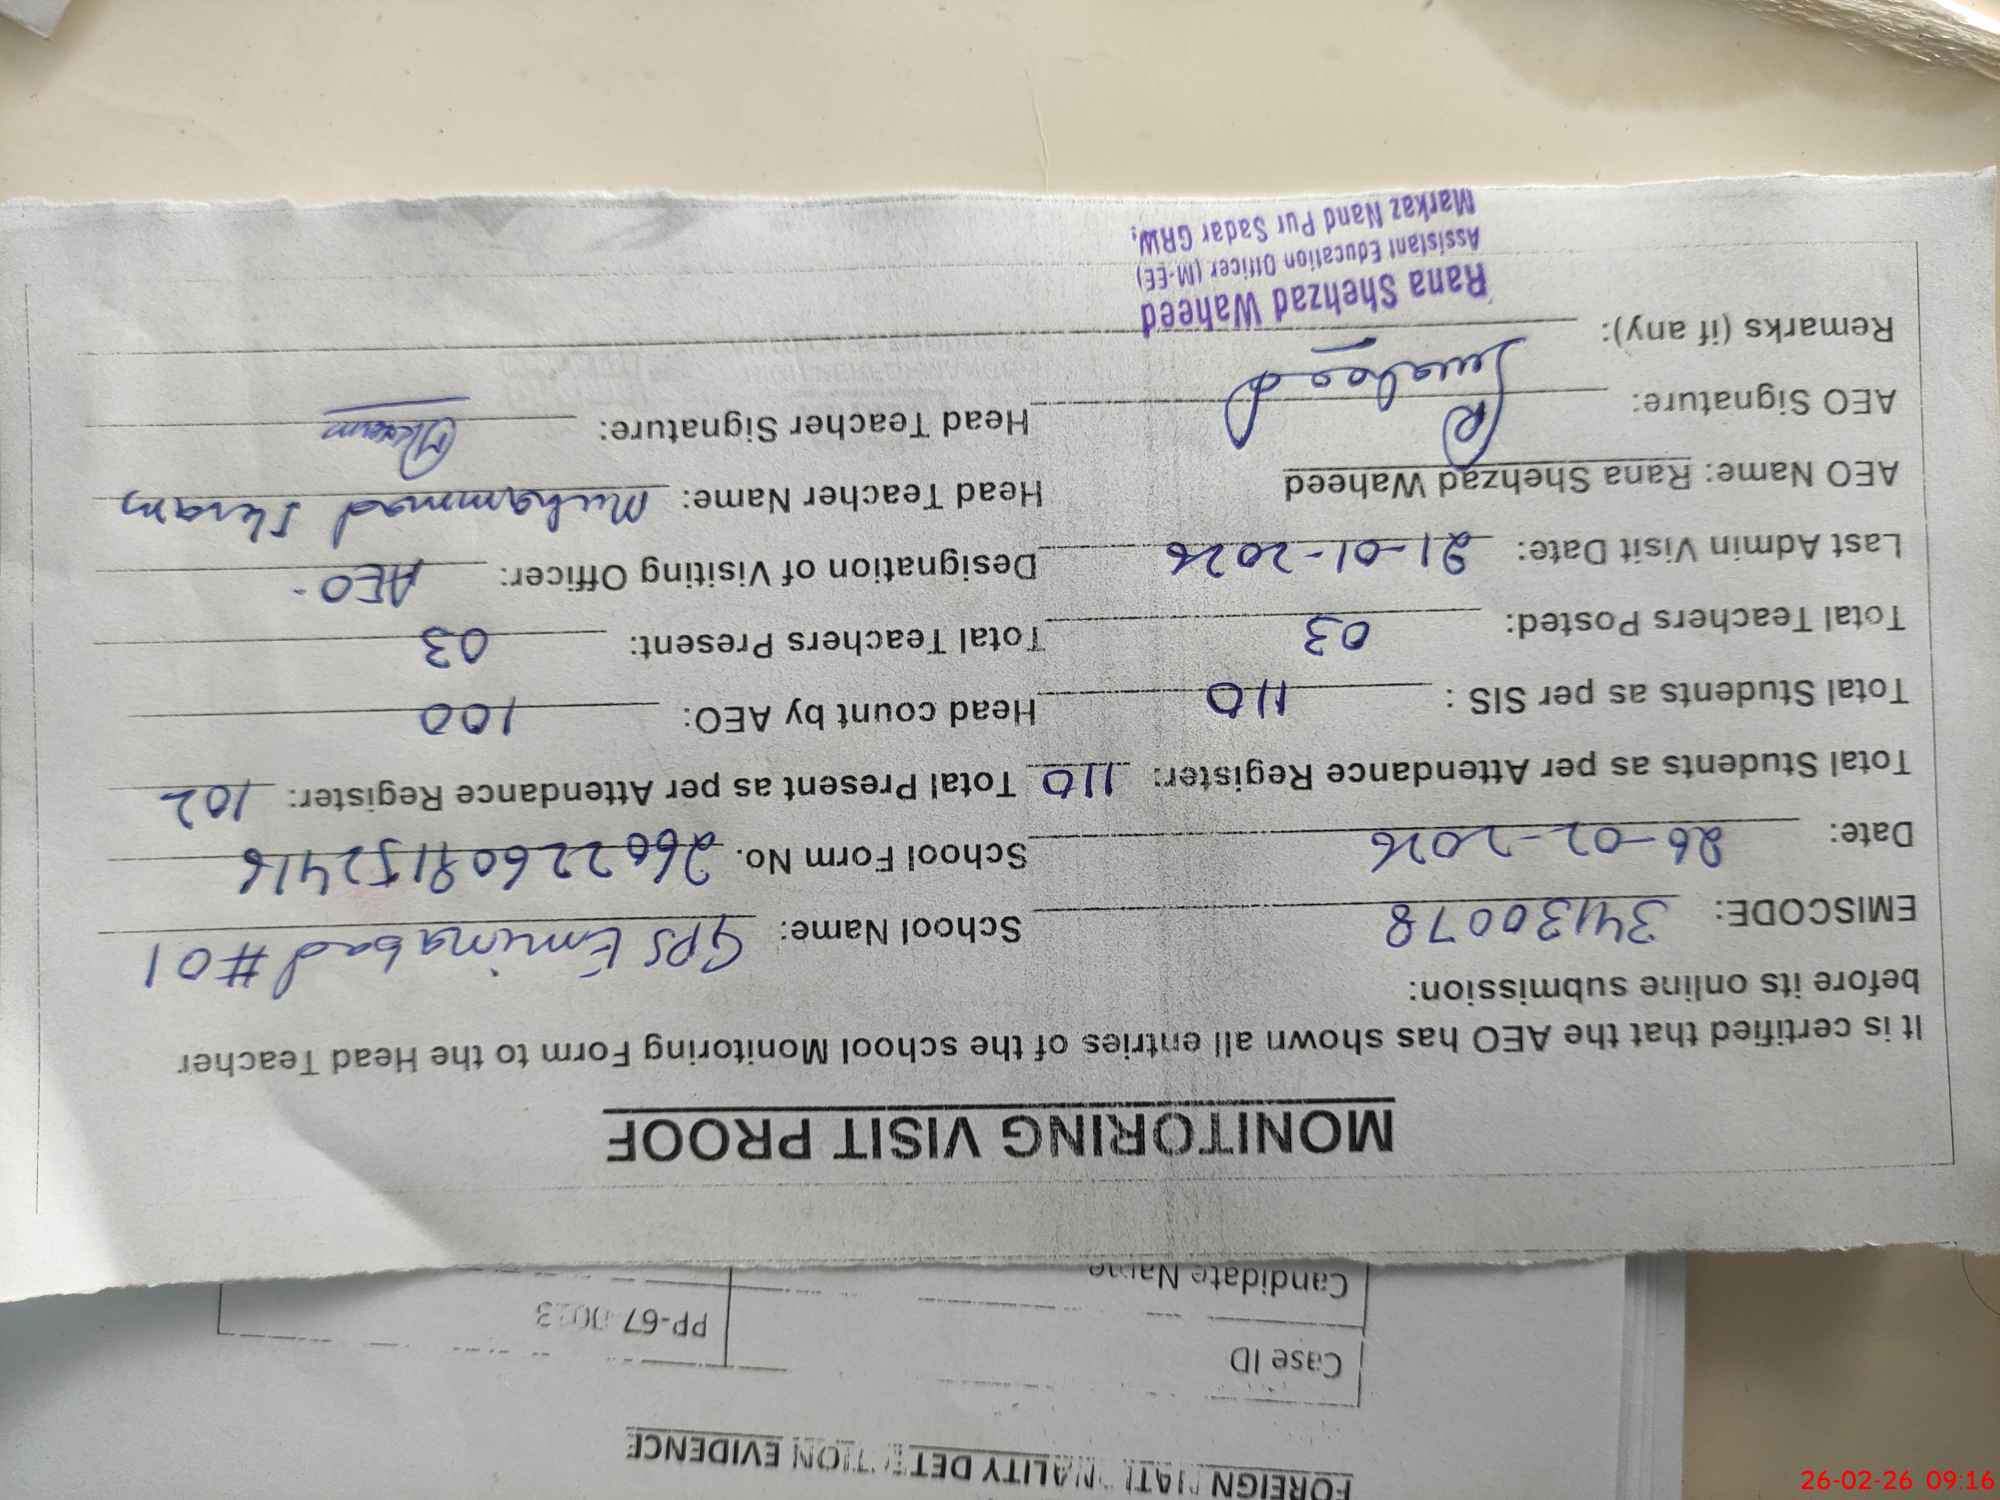 FOREIGN NATIONALITY DETECTION EVIDENCE
Case ID PP-67-0023
Candidate Name
MONITORING VISIT PROOF
It is certified that the AEO has shown all entries of the school Monitoring Form to the Head Teacher
before its online submission:
EMISCODE: 34130078 School Name: GPS Eminabad #01
Date: 26-02-2026 School Form No.
Total Students as per Attendance Register: 110 Total Present as per Attendance Register: 102
Total Students as per SIS : 110 Head count by AEO: 100
Total Teachers Posted: 03 Total Teachers Present: 03
Last Admin Visit Date: 21-01-2026 Designation of Visiting Officer: AEO
AEO Name: Rana Shehzad Waheed Head Teacher Name: Muhammad Ikram
AEO Signature: Head Teacher Signature:
Remarks (if any):
Rana Shehzad Waheed
Assistant Education Officer (M-EE)
Markaz Nand Pur Sadar GRW.
26-02-26 09:16